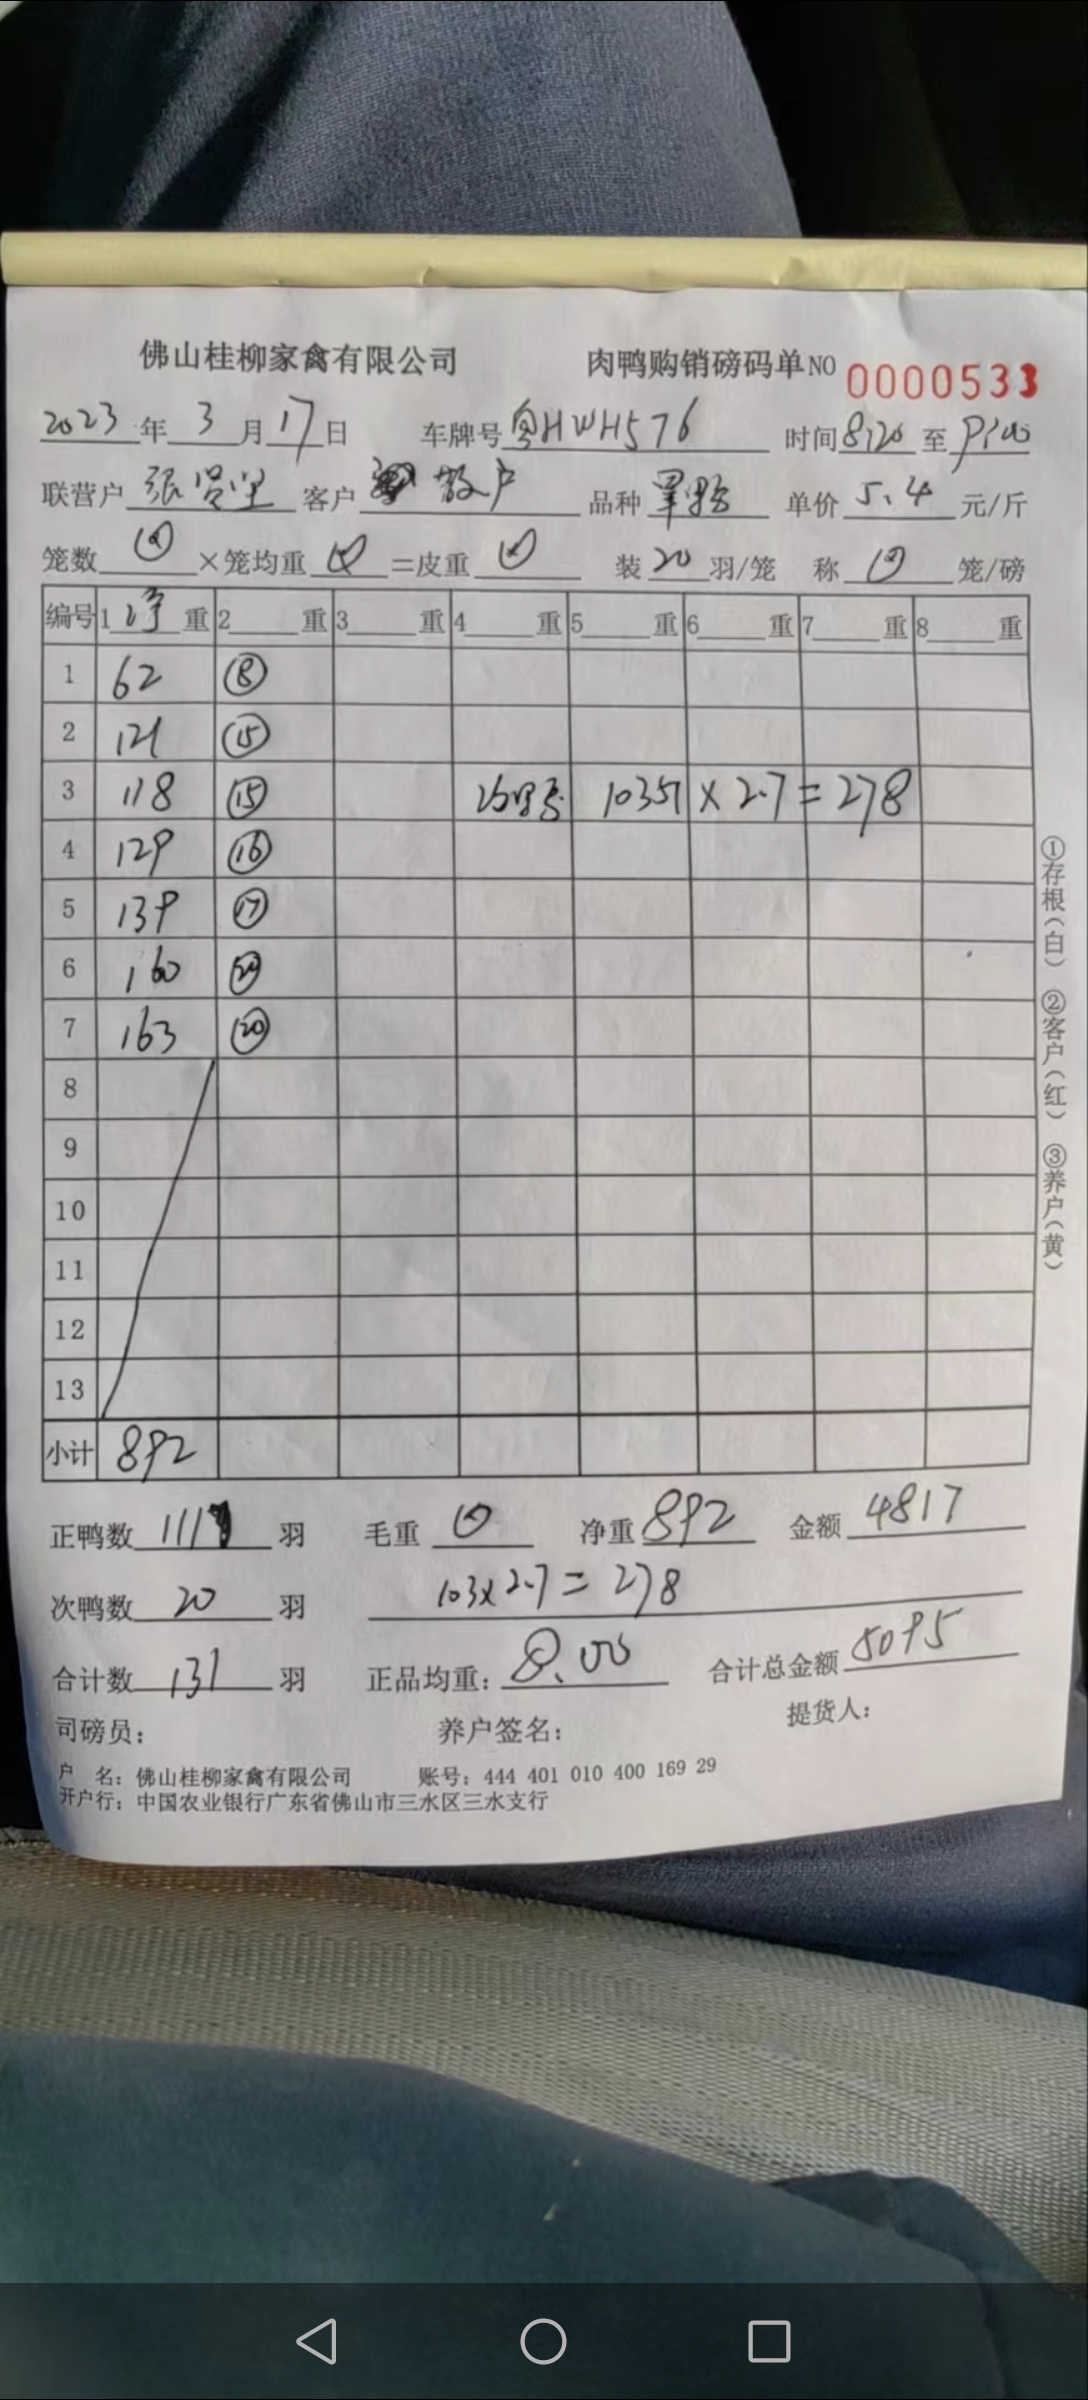 佛山桂柳家禽有限公司 肉鸭购销磅码单 NO 0000533
2023年3月17日 车牌号 粤HWH576 时间 8:20 至
联营户 张 客户 散户 品种 单价 5.4 元/斤
笼数 ×笼均重 =皮重 装 20 羽/笼 称 笼/磅
编号 1 净 重 2 重 3 重 4 重 5 重 6 重 7 重 8 重
1 62 ⑧
2 121 ⑮
3 118 ⑮ 103斤 × 2.7 = 278
4 129 ⑯
5 139 ⑰
6 160 ⑳
7 163 ⑳
8
9
10
11
12
13
小计 892
正鸭数 111 羽 毛重 净重 892 金额 4817
次鸭数 20 羽 103×2.7=278
合计数 131 羽 正品均重: 8.00 合计总金额 5095
司磅员: 养户签名: 提货人:
户 名: 佛山桂柳家禽有限公司 账号: 444 401 010 400 169 29
开户行: 中国农业银行广东省佛山市三水区三水支行
①存根(白) ②客户(红) ③养户(黄)